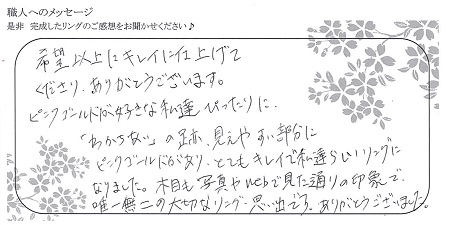 職人へのメッセージ
是非 完成したリングのご感想をお聞かせください♪
希望以上にキレイに仕上げて
くださり、ありがとうございます。
ピンクゴールドが好きな私達ぴったりに、
の跡、見えやすい部分に
ピンクゴールドがあり、とてもキレイで私達らしいリングに
なりました。木目も写真やwebで見た通りの印象で、
唯一無二の大切なリング・思い出です。ありがとうございました。